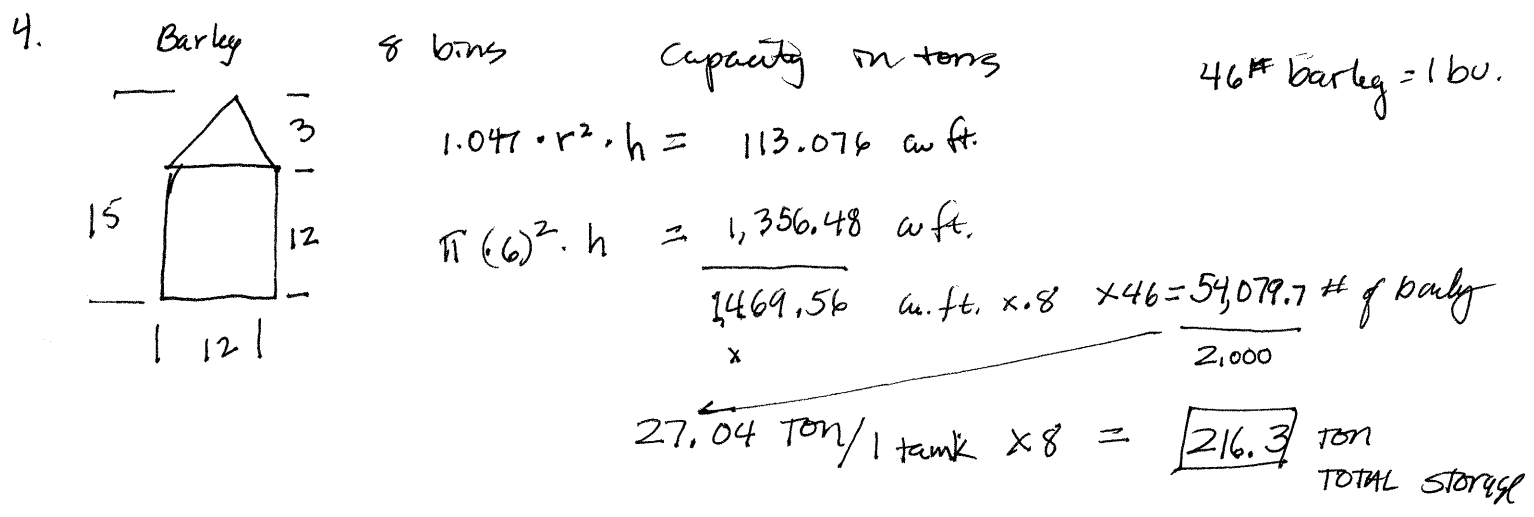 4. Barley 8 bins Capacity in tons 46# barley = 1 bu.
3
1.047 • r² • h = 113.076 cu ft.
15
12
π (.6)² • h = 1,356.48 cu ft.
1,469.56 cu. ft. x .8 x 46 = 54,079.7 # of barley
12
x
2,000
27.04 Ton/1 tank x 8 = 216.3 TON
TOTAL storage